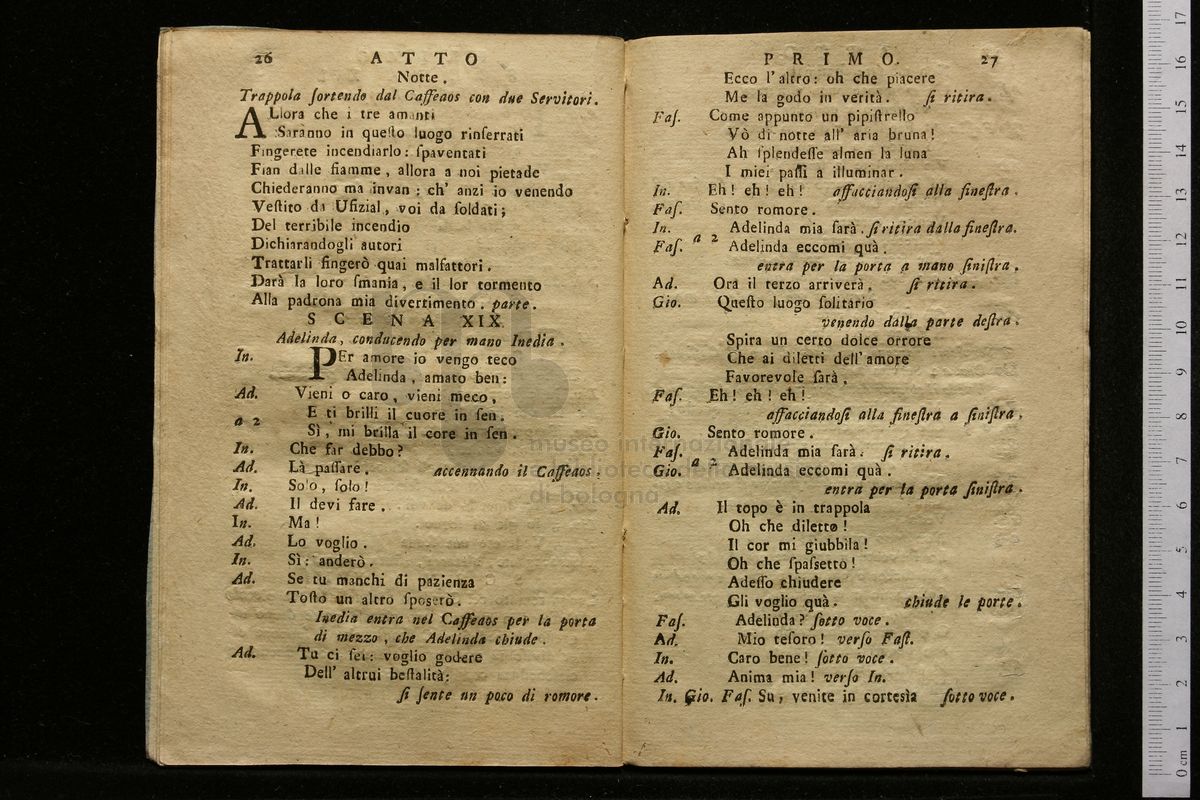 26 ATTO
Notte.
Trappola ſortendo dal Caffeaos con due Servitori.
ALlora che i tre amanti
Saranno in queſto luogo rinſerrati
Fingerete incendiarlo: ſpaventati
Fian dalle fiamme, allora a noi pietade
Chiederanno ma invan: ch' anzi io venendo
Veſtito da Ufizial, voi da ſoldati;
Del terribile incendio
Dichiarandogli autori
Trattarli fingerò quai malfattori.
Darà la loro ſmania, e il lor tormento
Alla padrona mia divertimento. parte.
SCENA XIX.
Adelinda, conducendo per mano Inedia.
In. PEr amore io vengo teco
Adelinda, amato ben:
Ad. Vieni o caro, vieni meco,
a 2 E ti brilli il cuore in ſen.
Sì, mi brilla il core in ſen.
In. Che far debbo?
Ad. Là paſſare. accennando il Caffeaos.
In. Solo, ſolo!
Ad. Il devi fare.
In. Ma!
Ad. Lo voglio.
In. Sì: anderò.
Ad. Se tu manchi di pazienza
Toſto un altro ſposerò.
Inedia entra nel Caffeaos per la porta
di mezzo, che Adelinda chiude.
Ad. Tu ci ſei: voglio godere
Dell' altrui beſtalità:
ſi ſente un poco di romore.
PRIMO. 27
Ecco l' altro: oh che piacere
Me la godo in verità. ſi ritira.
Faſ. Come appunto un pipiſtrello
Vò di notte all' aria bruna!
Ah ſplendeſſe almen la luna
I miei paſſi a illuminar.
In. Eh! eh! eh! affacciandoſi alla fineſtra.
Faſ. Sento romore.
In. Adelinda mia ſarà. ſi ritira dalla fineſtra.
Faſ. a 2 Adelinda eccomi quà.
entra per la porta a mano ſiniſtra.
Ad. Ora il terzo arriverà. ſi ritira.
Gio. Queſto luogo ſolitario
venendo dalla parte deſtra.
Spira un certo dolce orrore
Che ai diletti dell' amore
Favorevole ſarà.
Faſ. Eh! eh! eh!
affacciandoſi alla fineſtra a ſiniſtra.
Gio. Sento romore.
Faſ. Adelinda mia ſarà. ſi ritira.
Gio. a 2 Adelinda eccomi quà.
entra per la porta ſiniſtra.
Ad. Il topo è in trappola
Oh che diletto!
Il cor mi giubbila!
Oh che ſpaſsetto!
Adeſſo chiudere
Gli voglio quà. chiude le porte.
Faſ. Adelinda? ſotto voce.
Ad. Mio teſoro! verſo Faſt.
In. Caro bene! ſotto voce.
Ad. Anima mia! verſo In.
In. Gio. Faſ. Su, venite in cortesìa ſotto voce.
museo internazionale
e biblioteca della musica
di bologna
0 cm 1 2 3 4 5 6 7 8 9 10 11 12 13 14 15 16 17